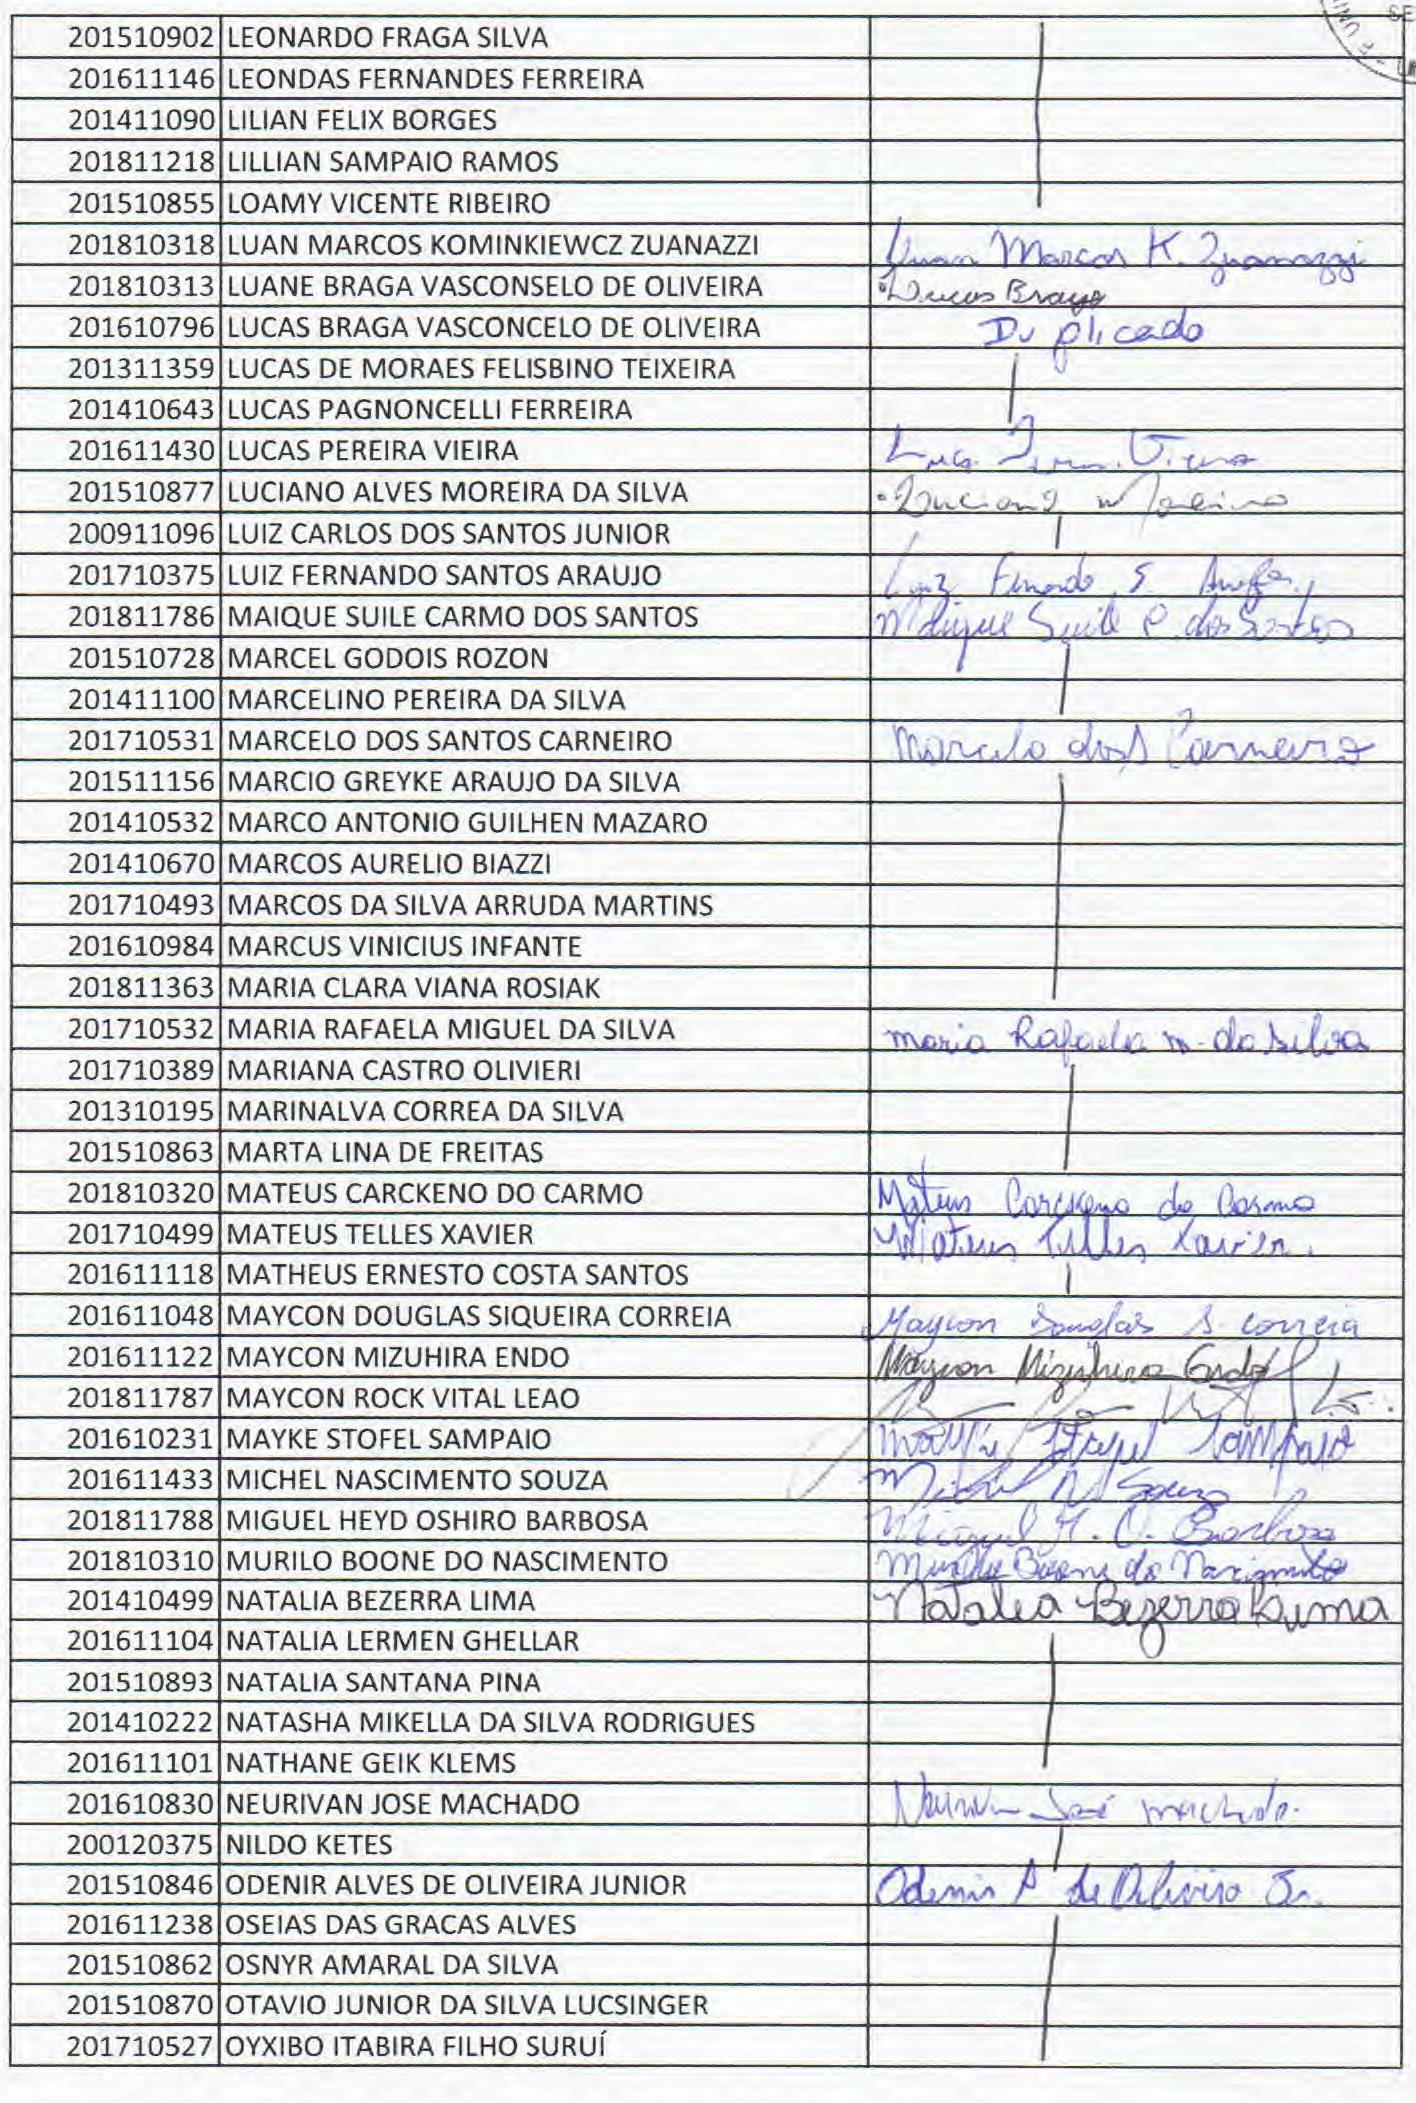 SE
201510902 LEONARDO FRAGA SILVA
201611146 LEONDAS FERNANDES FERREIRA
201411090 LILIAN FELIX BORGES
201811218 LILLIAN SAMPAIO RAMOS
201510855 LOAMY VICENTE RIBEIRO
201810318 LUAN MARCOS KOMINKIEWCZ ZUANAZZI Luan Marcos K. Zuanazzi
201810313 LUANE BRAGA VASCONSELO DE OLIVEIRA Lucas Braga
201610796 LUCAS BRAGA VASCONCELO DE OLIVEIRA Duplicado
201311359 LUCAS DE MORAES FELISBINO TEIXEIRA
201410643 LUCAS PAGNONCELLI FERREIRA
201611430 LUCAS PEREIRA VIEIRA Lucas Vieira
201510877 LUCIANO ALVES MOREIRA DA SILVA Luciano Moreira
200911096 LUIZ CARLOS DOS SANTOS JUNIOR
201710375 LUIZ FERNANDO SANTOS ARAUJO Luiz Fernando S. Araujo
201811786 MAIQUE SUILE CARMO DOS SANTOS Maique Suile C. dos Santos
201510728 MARCEL GODOIS ROZON
201411100 MARCELINO PEREIRA DA SILVA
201710531 MARCELO DOS SANTOS CARNEIRO Marcelo dos S Carneiro
201511156 MARCIO GREYKE ARAUJO DA SILVA
201410532 MARCO ANTONIO GUILHEN MAZARO
201410670 MARCOS AURELIO BIAZZI
201710493 MARCOS DA SILVA ARRUDA MARTINS
201610984 MARCUS VINICIUS INFANTE
201811363 MARIA CLARA VIANA ROSIAK
201710532 MARIA RAFAELA MIGUEL DA SILVA maria Rafaela m. da Silva
201710389 MARIANA CASTRO OLIVIERI
201310195 MARINALVA CORREA DA SILVA
201510863 MARTA LINA DE FREITAS
201810320 MATEUS CARCKENO DO CARMO Mateus Carckeno do Carmo
201710499 MATEUS TELLES XAVIER Mateus Telles Xavier.
201611118 MATHEUS ERNESTO COSTA SANTOS
201611048 MAYCON DOUGLAS SIQUEIRA CORREIA Maycon Douglas S. correia
201611122 MAYCON MIZUHIRA ENDO Maycon Mizuhira Endo
201811787 MAYCON ROCK VITAL LEAO
201610231 MAYKE STOFEL SAMPAIO Mayke Stofel Sampaio
201611433 MICHEL NASCIMENTO SOUZA Michel N Souza
201811788 MIGUEL HEYD OSHIRO BARBOSA Miguel H. O. Barbosa
201810310 MURILO BOONE DO NASCIMENTO Murilo Boone do Nascimento
201410499 NATALIA BEZERRA LIMA Natalia Bezerra Lima
201611104 NATALIA LERMEN GHELLAR
201510893 NATALIA SANTANA PINA
201410222 NATASHA MIKELLA DA SILVA RODRIGUES
201611101 NATHANE GEIK KLEMS
201610830 NEURIVAN JOSE MACHADO Neurivan José machado.
200120375 NILDO KETES
201510846 ODENIR ALVES DE OLIVEIRA JUNIOR Odenir A de Oliveira Jr.
201611238 OSEIAS DAS GRACAS ALVES
201510862 OSNYR AMARAL DA SILVA
201510870 OTAVIO JUNIOR DA SILVA LUCSINGER
201710527 OYXIBO ITABIRA FILHO SURUÍ